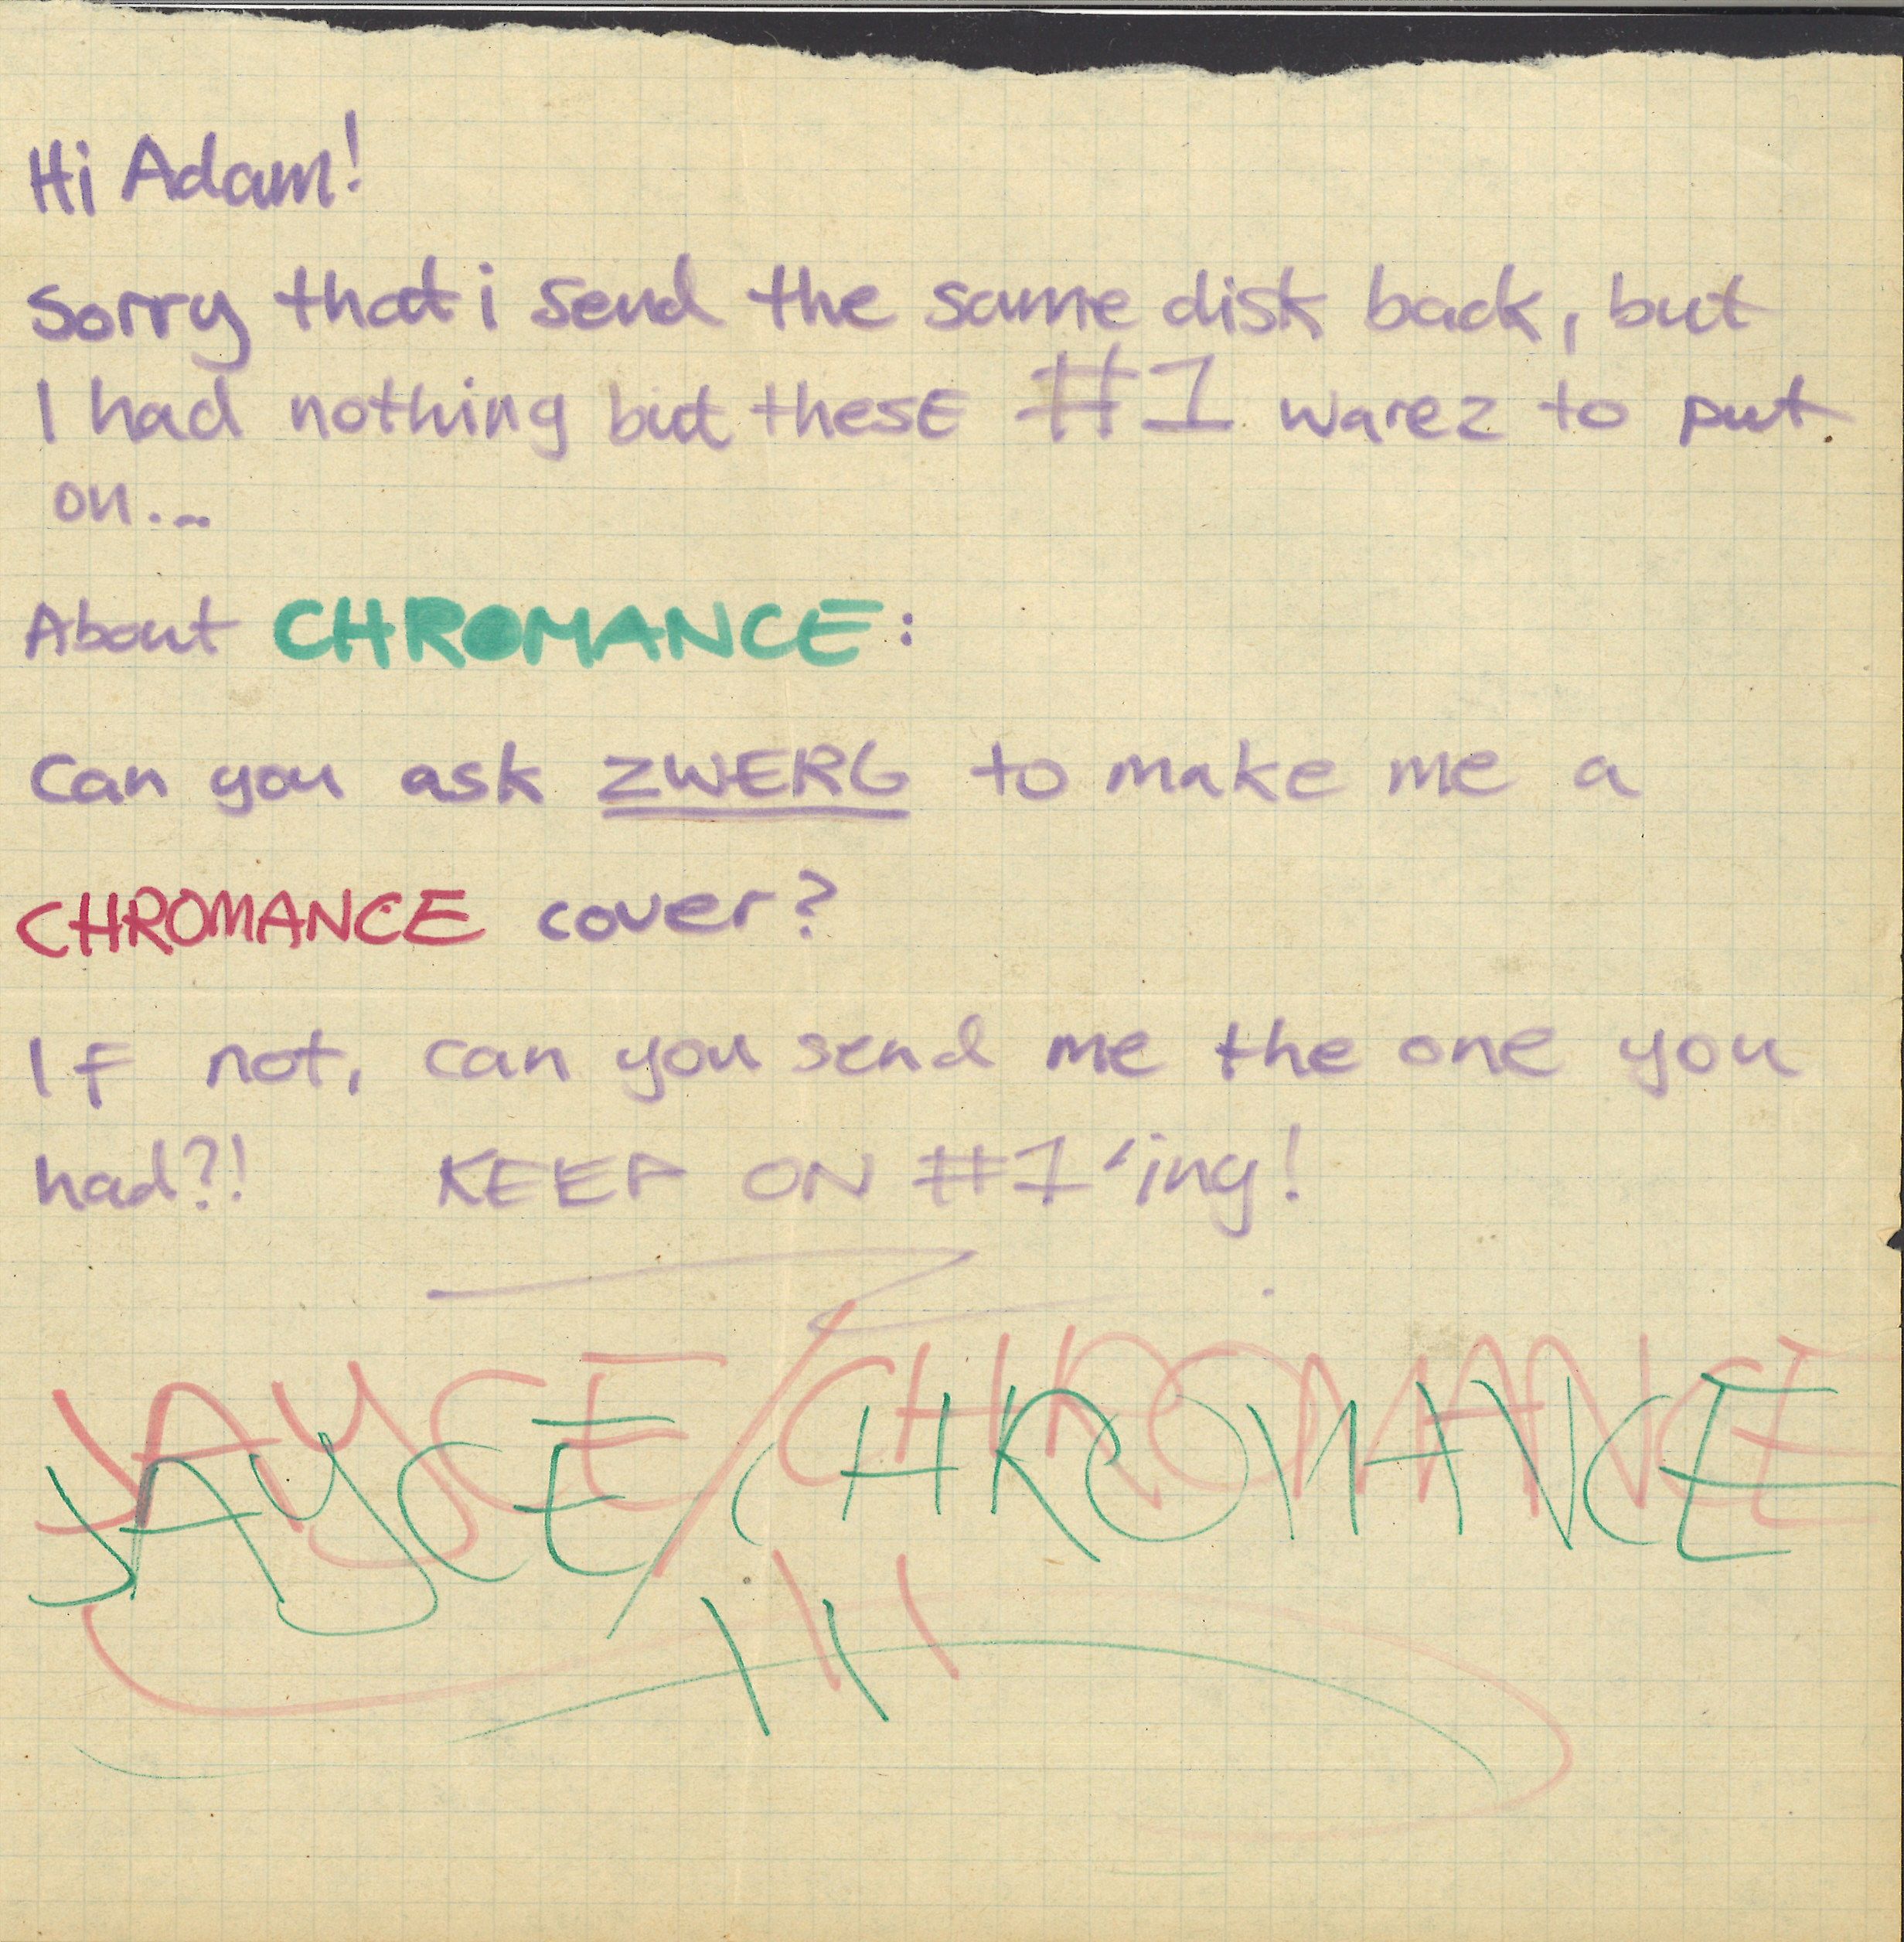 Hi Adam!
Sorry that i send the same disk back, but
I had nothing but thesE #1 warez to put
on...
About CHROMANCE:
Can you ask ZWERG to make me a
CHROMANCE cover?
IF not, can you send me the one you
had?! KEEP ON #1'ing!
JAYCE/CHROMANCE